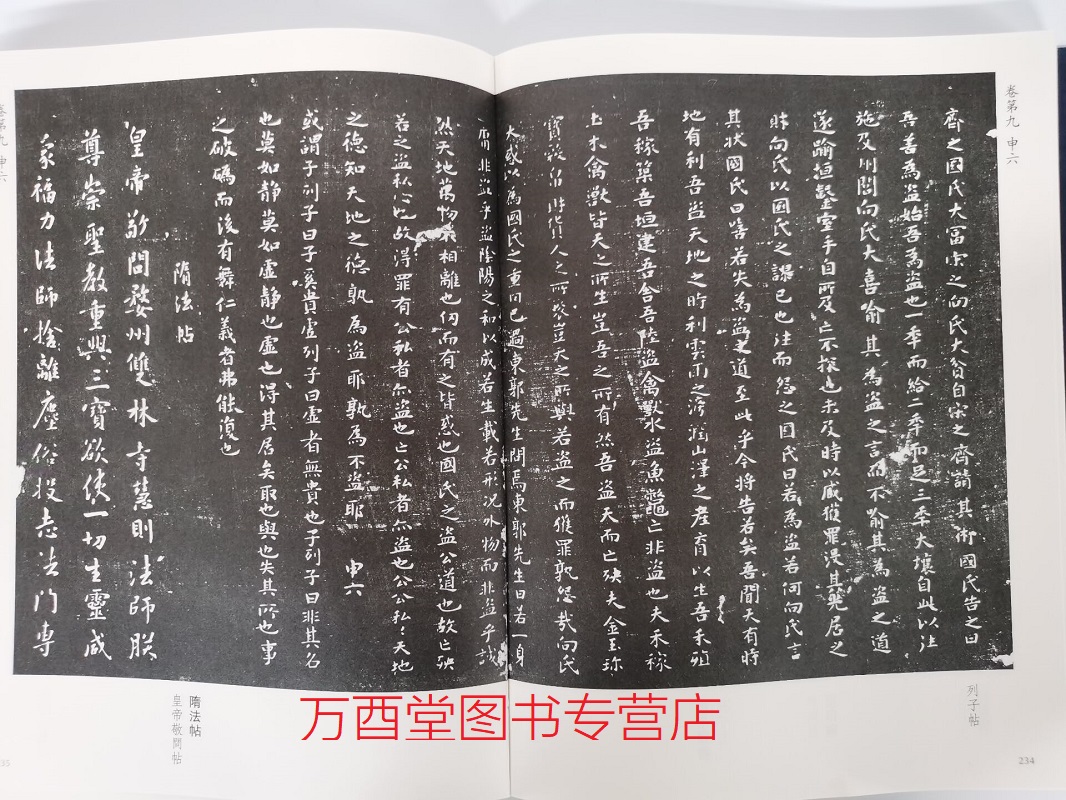 卷第九 申六
齊之國氏大富宋之向氏大貧自宋之齊請其術國氏告之曰
吾善為盜始吾為盜也一年而給二年而足三年大壤自此以往
施及州閭向氏大喜喻其為盜之言而不喻其為盜之道
遂踰垣鑿室手目所及亡不探也未及時以臧獲罪沒其先居之
財向氏以國氏之謬己也往而怨之國氏曰若為盜若何向氏言
其狀國氏曰嘻若失為盜之道至此乎今將告若矣吾聞天有時
地有利吾盜天地之時利雲雨之滂潤山澤之產育以生吾禾殖
吾稼築吾垣建吾舍吾陸盜禽獸水盜魚鼈亡非盜也夫禾稼
土木禽獸皆天之所生豈吾之所有然吾盜天而亡殃夫金玉珍
寶穀帛財貨人之所聚豈天之所與若盜之而獲罪孰怨哉向氏
大惑以為國氏之重罔己過東郭先生問焉東郭先生曰若一身
庸非盜乎盜陰陽之和以成若生載若形況外物而非盜乎誠
然天地萬物不相離也仞而有之皆惑也國氏之盜公道也故亡殃
若之盜私心也故得罪有公私者亦盜也亡公私者亦盜也公公私〻天地
之德知天地之德孰為盜耶孰為不盜耶 申六
或謂子列子曰子奚貴虛列子曰虛者無貴也子列子曰非其名
也莫如靜莫如虛靜也虛也得其居矣取也與也失其所也事
之破碼而後有舞仁義者弗能復也
隋法帖
皇帝敬問婺州雙林寺慧則法師朕
尊崇聖教重興三寶欲使一切生靈咸
蒙福力法師捨離塵俗投志法門專
列子帖
234
卷第九 申六
隋法帖
皇帝敬問帖
万酉堂图书专营店